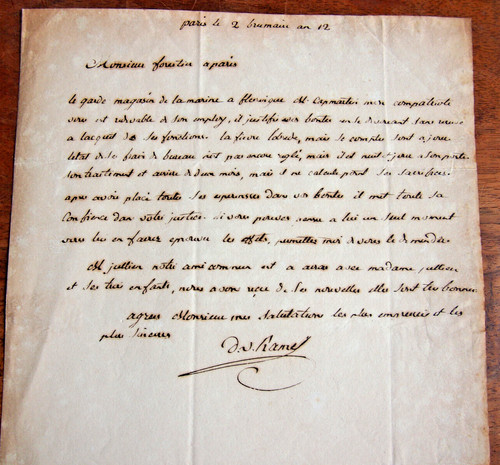 paris le 2 brumaire an 12
Monsieur forestier a paris
le garde magasin de la marine a flessingue Mr. Capmartin mon compatriote
vous est redevable de son employ, il justifie vos bontés
a laquel de ses fonctions. la fievre l'obsede, mais ses comptes sont a jour
l'etat de ses frais de bureau n'est pas encore reglé, mais il est nuit et jour a son poste
son traitement est arrieré de deux mois, mais il ne calcule point ses sacrifices
apres avoir placé toutes ses esperances dans vos bontés il met toute sa
Confiance dans votre justice. si vous pouvez penser a lui un seul moment
vous lui en fairez eprouver les effets, permettez moi de vous le demander
Mr. jullien notre ami commun est a auras avec madame jullien
et ses trois enfants, nous avons reçu de ses nouvelles elles sont tres bonnes
agréez Monsieur mes salutations les plus empressées et les
plus sinceres
D. v. Ramel